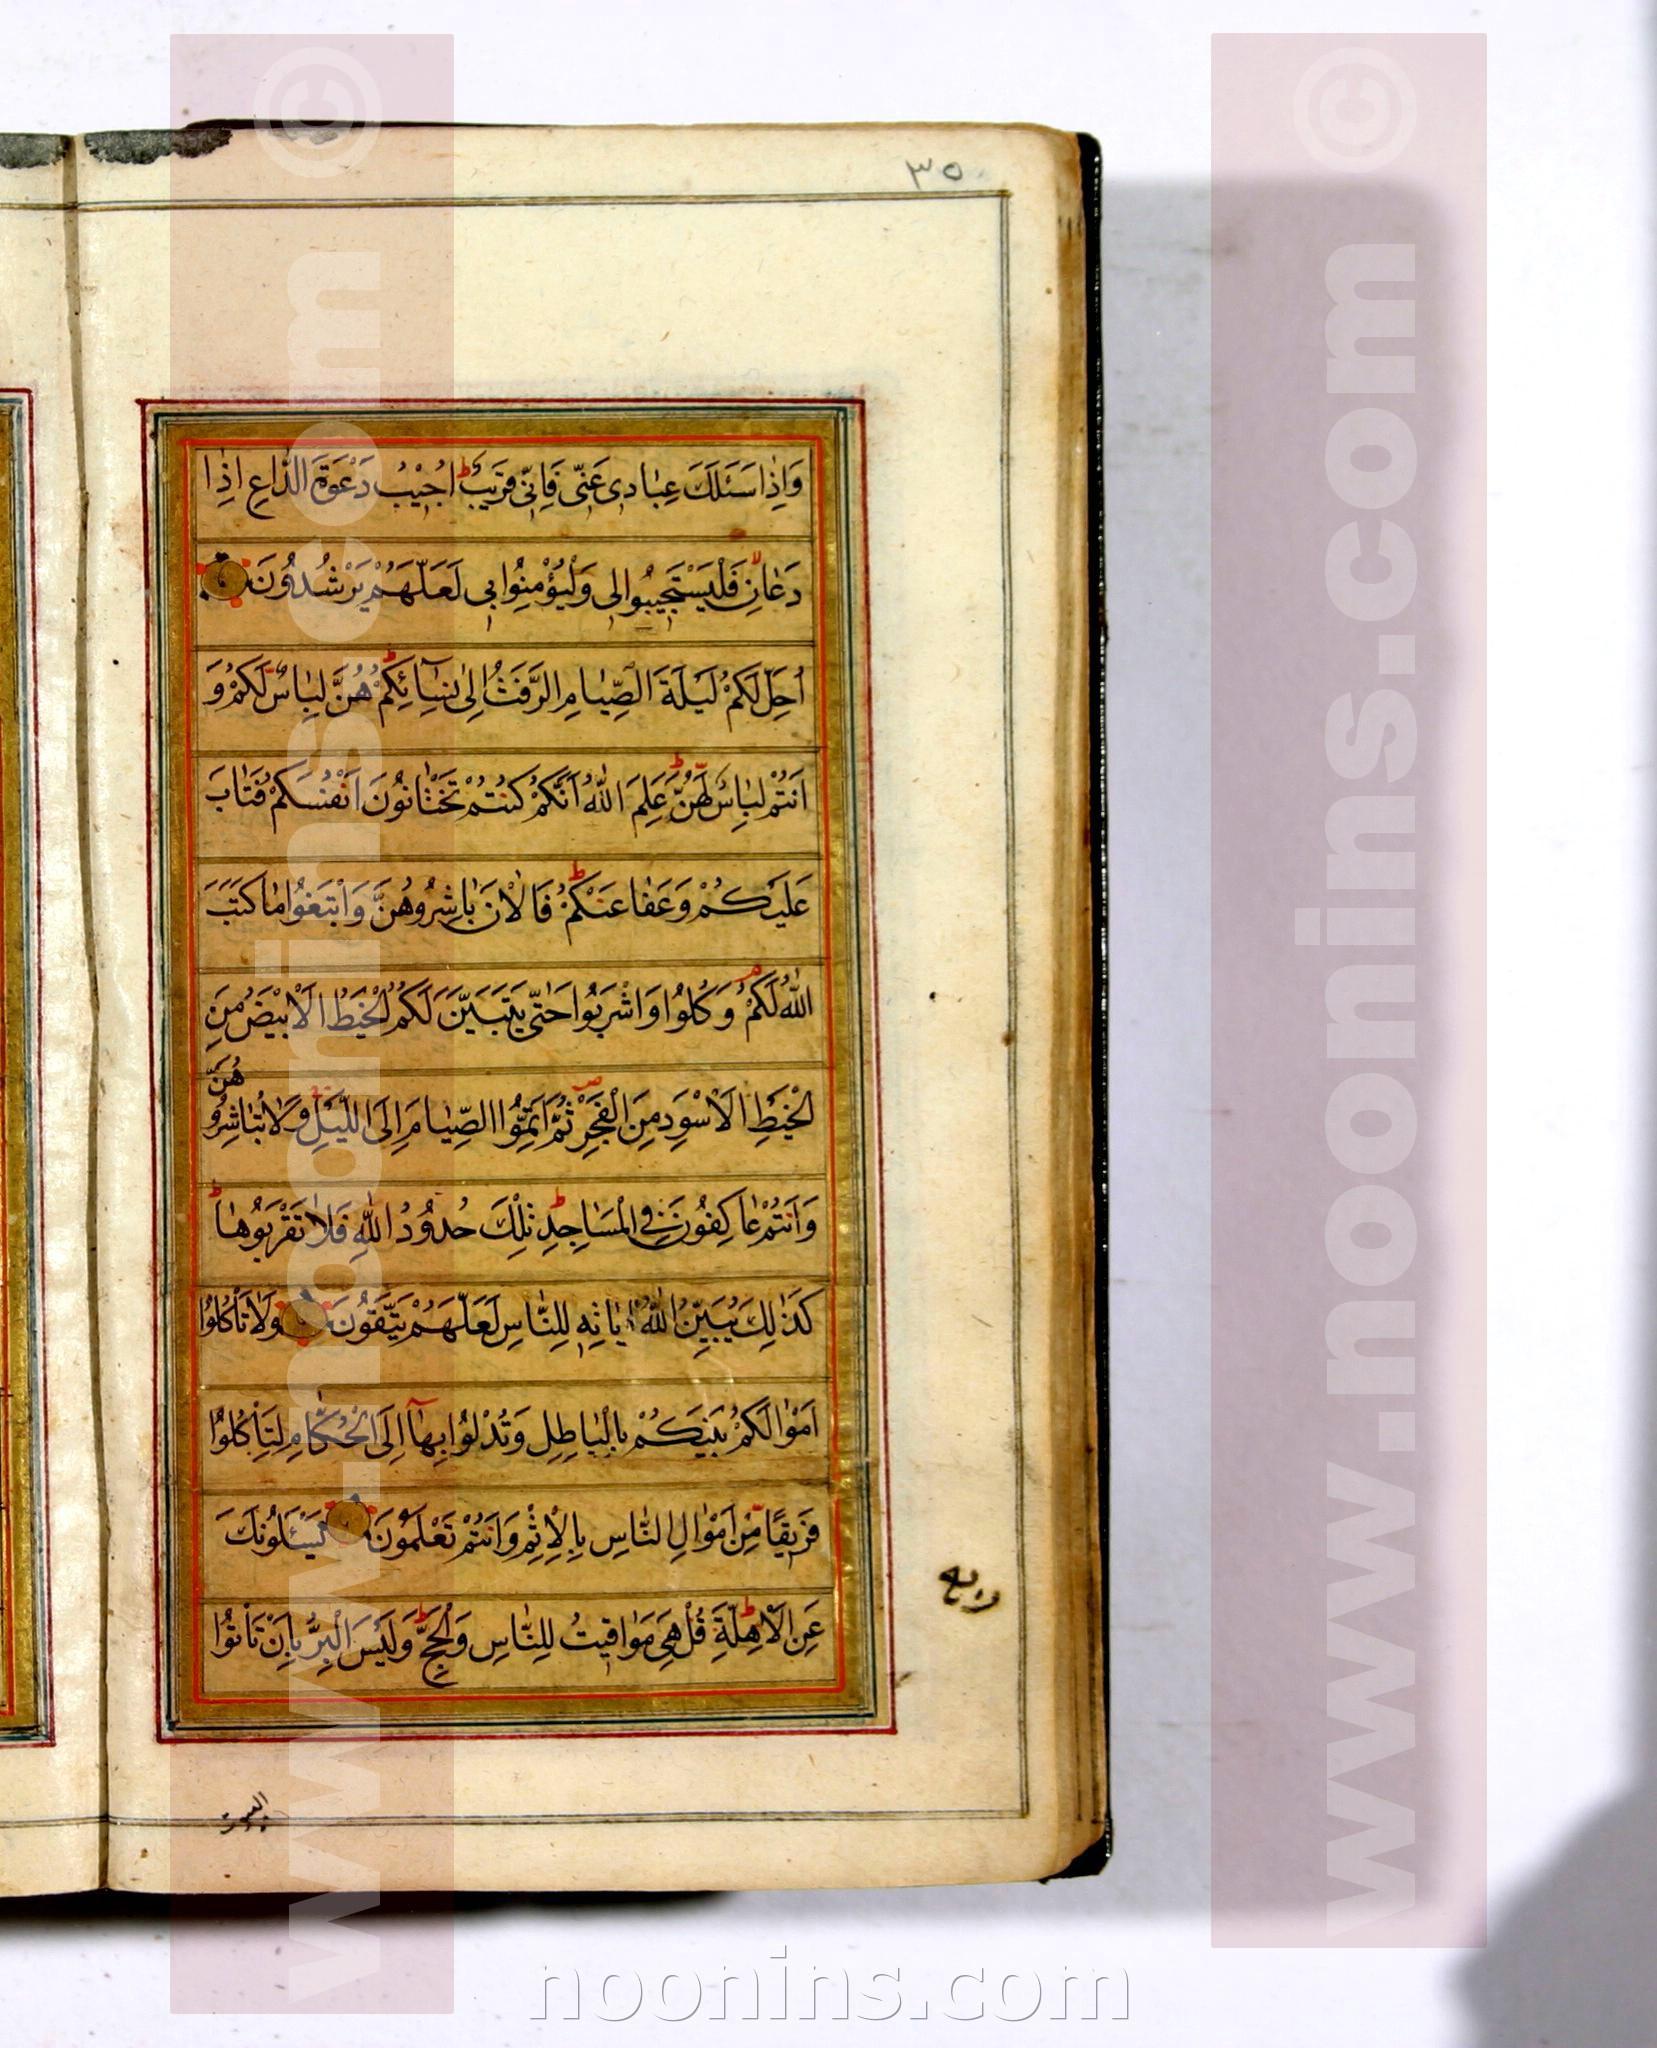 ٣٥
وَاِذٰا سَئَلَكَ عِبٰادٖى عَنّٖى فَاِنّٖى قَرٖيبٌ ط اُجٖيْبُ دَعْوَةَ الدّٰاعِ اِذٰا
دَعٰانِ لا فَلْيَسْتَجٖيبُوا لٖى وَلْيُؤْمِنُوا بٖى لَعَلَّهُمْ يَرْشُدُونَ
اُحِلَّ لَكُمْ لَيْلَةَ الصِّيٰامِ الرَّفَثُ اِلىٰ نِسٰٓائِكُمْ ط هُنَّ لِبٰاسٌ لَكُمْ وَ
اَنْتُمْ لِبٰاسٌ لَهُنَّ ط عَلِمَ اللّٰهُ اَنَّكُمْ كُنْتُمْ تَخْتٰانُونَ اَنْفُسَكُمْ فَتٰابَ
عَلَيْكُمْ وَعَفٰا عَنْكُمْ ط فَالْاٰنَ بٰاشِرُوهُنَّ وَابْتَغُوا مٰا كَتَبَ
اللّٰهُ لَكُمْ ص وَكُلُوا وَاشْرَبُوا حَتّٰى يَتَبَيَّنَ لَكُمُ الْخَيْطُ الْاَبْيَضُ مِنَ
الْخَيْطِ الْاَسْوَدِ مِنَ الْفَجْرِ ص ثُمَّ اَتِمُّوا الصِّيٰامَ اِلَى اللَّيْلِ وَلٰا تُبٰاشِرُو هُنَّ
وَاَنْتُمْ عٰاكِفُونَ فِى الْمَسٰاجِدِ ط تِلْكَ حُدُودُ اللّٰهِ فَلٰا تَقْرَبُوهٰا ط
كَذٰلِكَ يُبَيِّنُ اللّٰهُ اٰيٰاتِهٖ لِلنّٰاسِ لَعَلَّهُمْ يَتَّقُونَ وَلٰا تَاْكُلُوا
اَمْوٰالَكُمْ بَيْنَكُمْ بِالْبٰاطِلِ وَتُدْلُوا بِهٰٓا اِلَى الْحُكّٰامِ لِتَاْكُلُوا
فَرٖيقًا مِنْ اَمْوٰالِ النّٰاسِ بِالْاِثْمِ وَاَنْتُمْ تَعْلَمُونَ يَسْئَلُونَكَ
عَنِ الْاَهِلَّةِ ط قُلْ هِىَ مَوٰاقٖيتُ لِلنّٰاسِ وَالْحَجِّ ط وَلَيْسَ الْبِرُّ بِاَنْ تَاْتُوا
البيوت
www.noonins.com ©
www.noonins.com ©
noonins.com